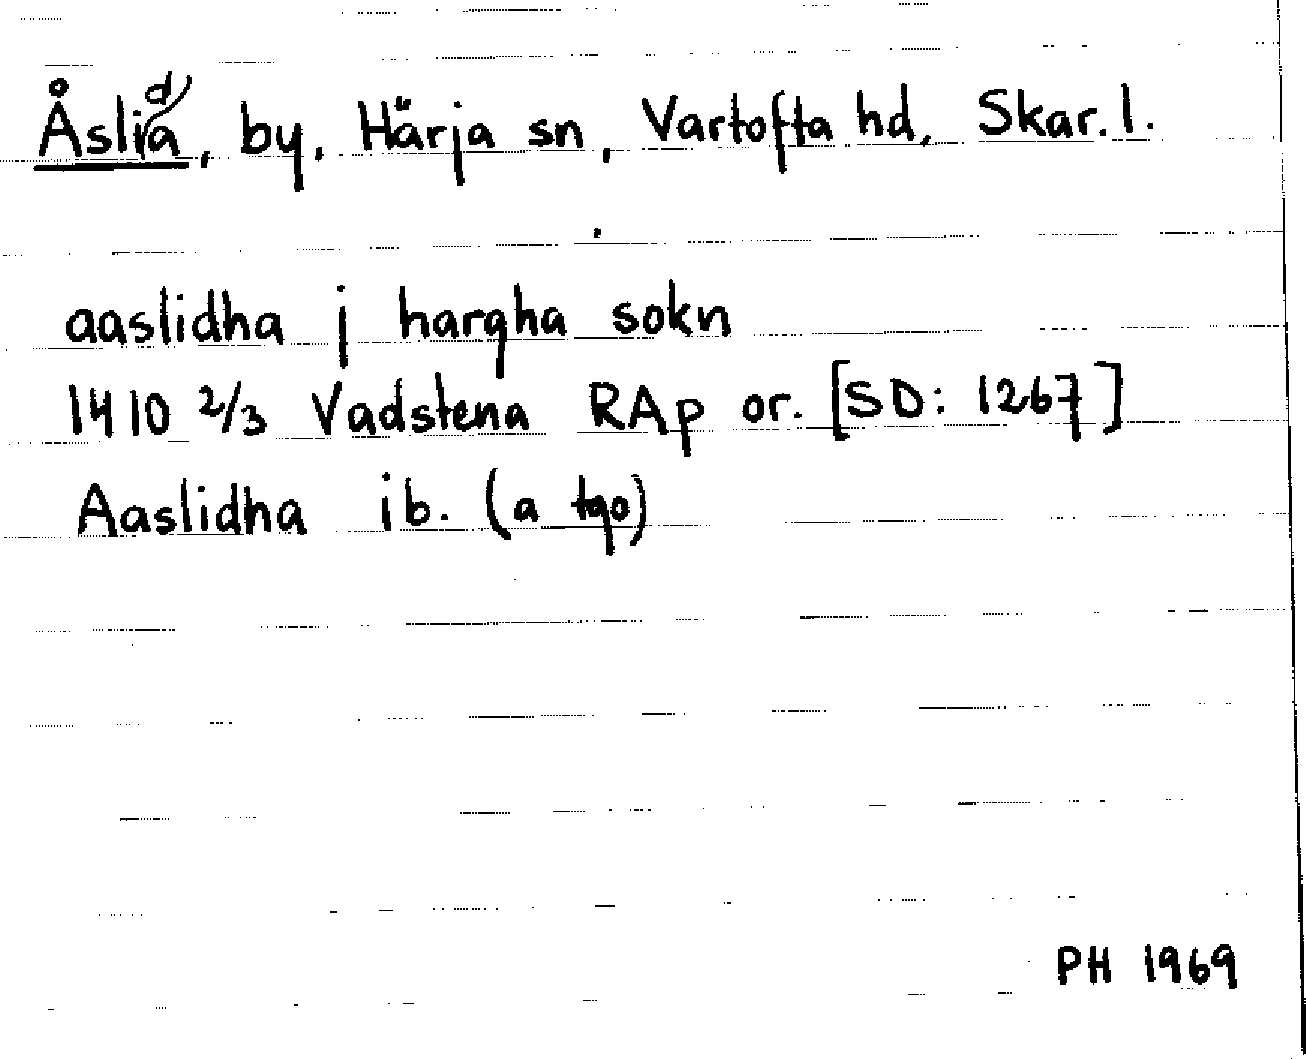 Åslida, by, Härja sn, Vartofta hd, Skar. l.
aaslidha j hargha sokn
1410 2/3 Vadstena RAp or. [SD: 1267]
Aaslidha ib. (a tgo)
PH 1969